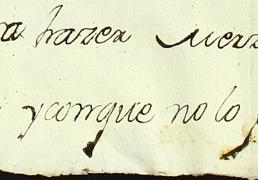 a hazer merz
y conque no lo